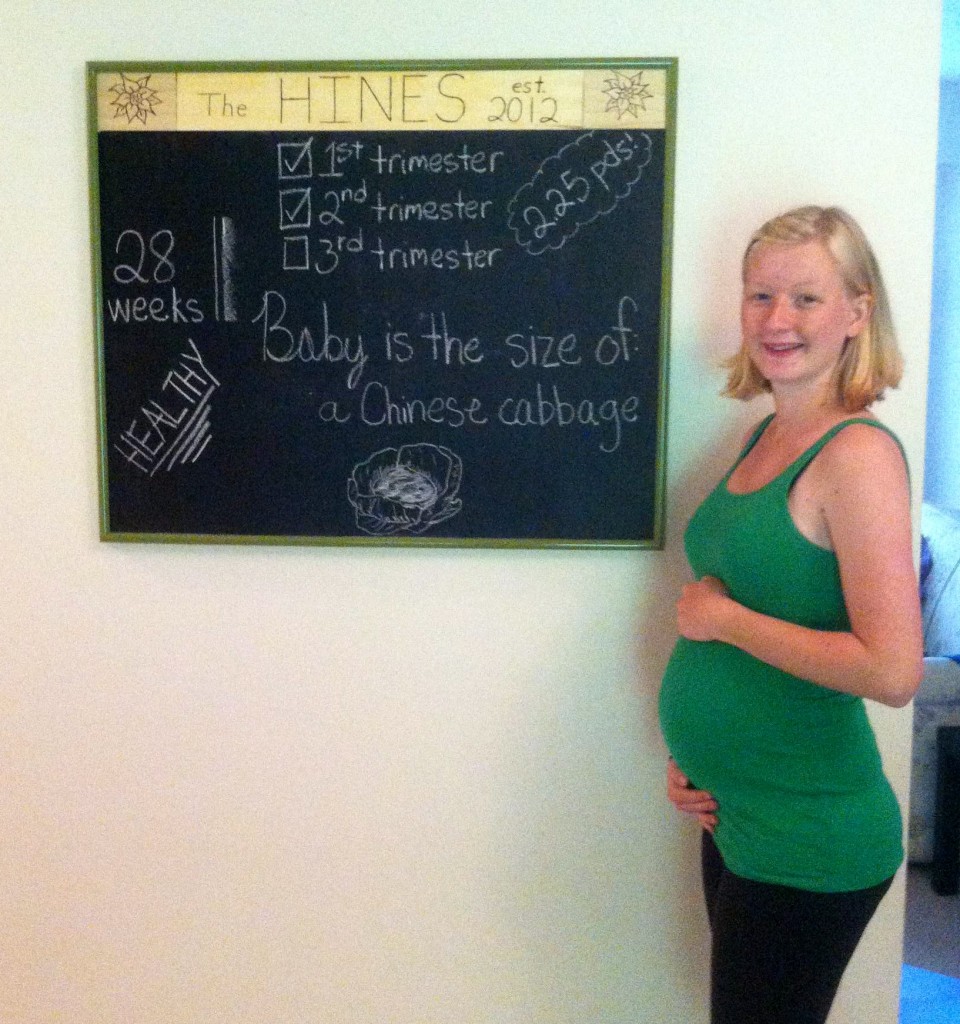 The HINES est. 2012
1st trimester
2nd trimester
3rd trimester
2.25 pds!
28
weeks
HEALTHY
Baby is the size of:
a Chinese cabbage